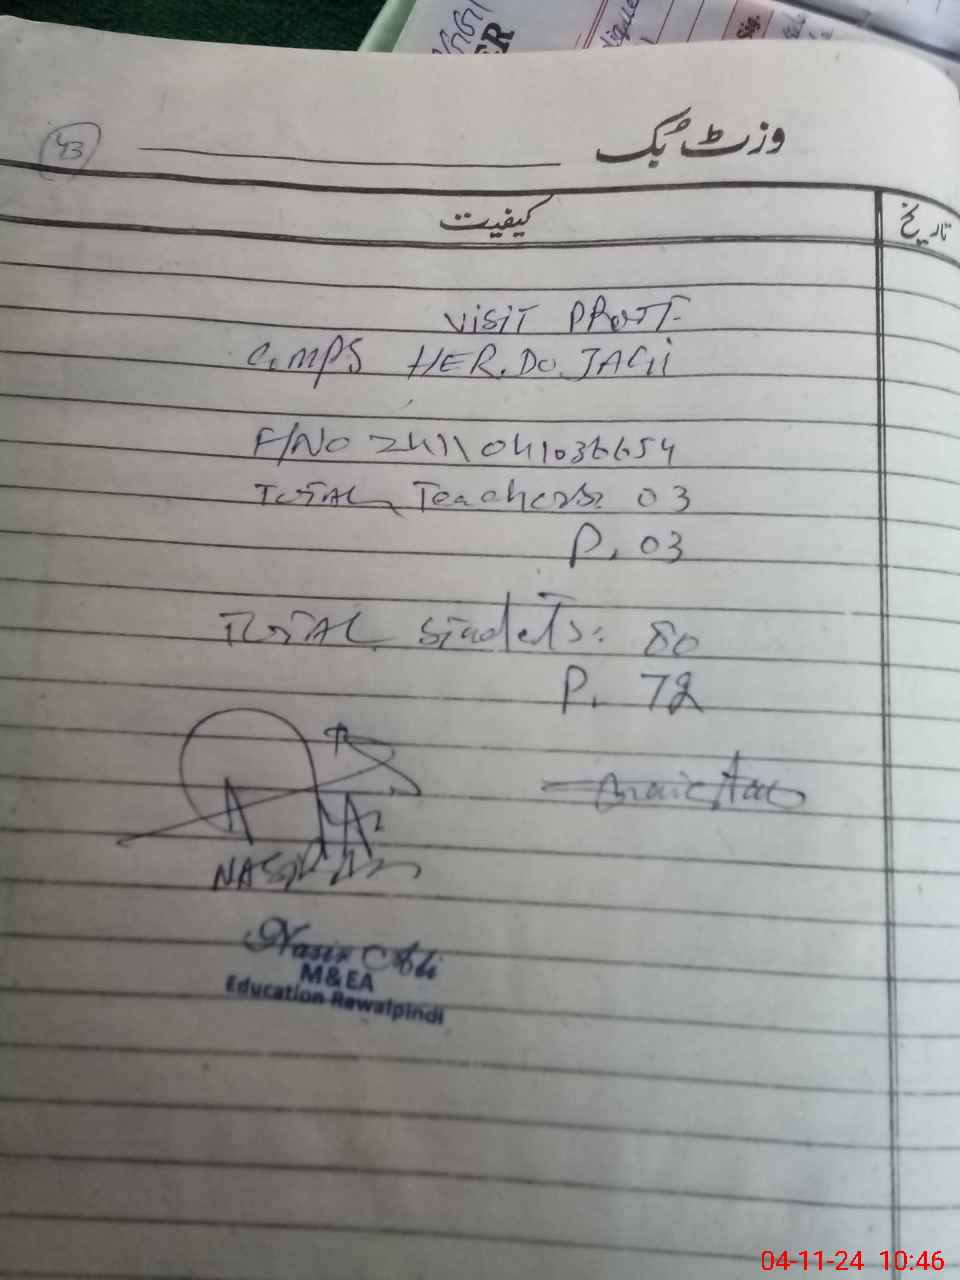 وزٹ بک
43
کیفیت
تاریخ
VISIT
HER. DO. JAGI
F/NO 2411041036654
TOTAL Teachers: 03
P. 03
TOTAL Students: 80
P. 72
Nasir Ali
M&EA
Education Rawalpindi
04-11-24 10:46